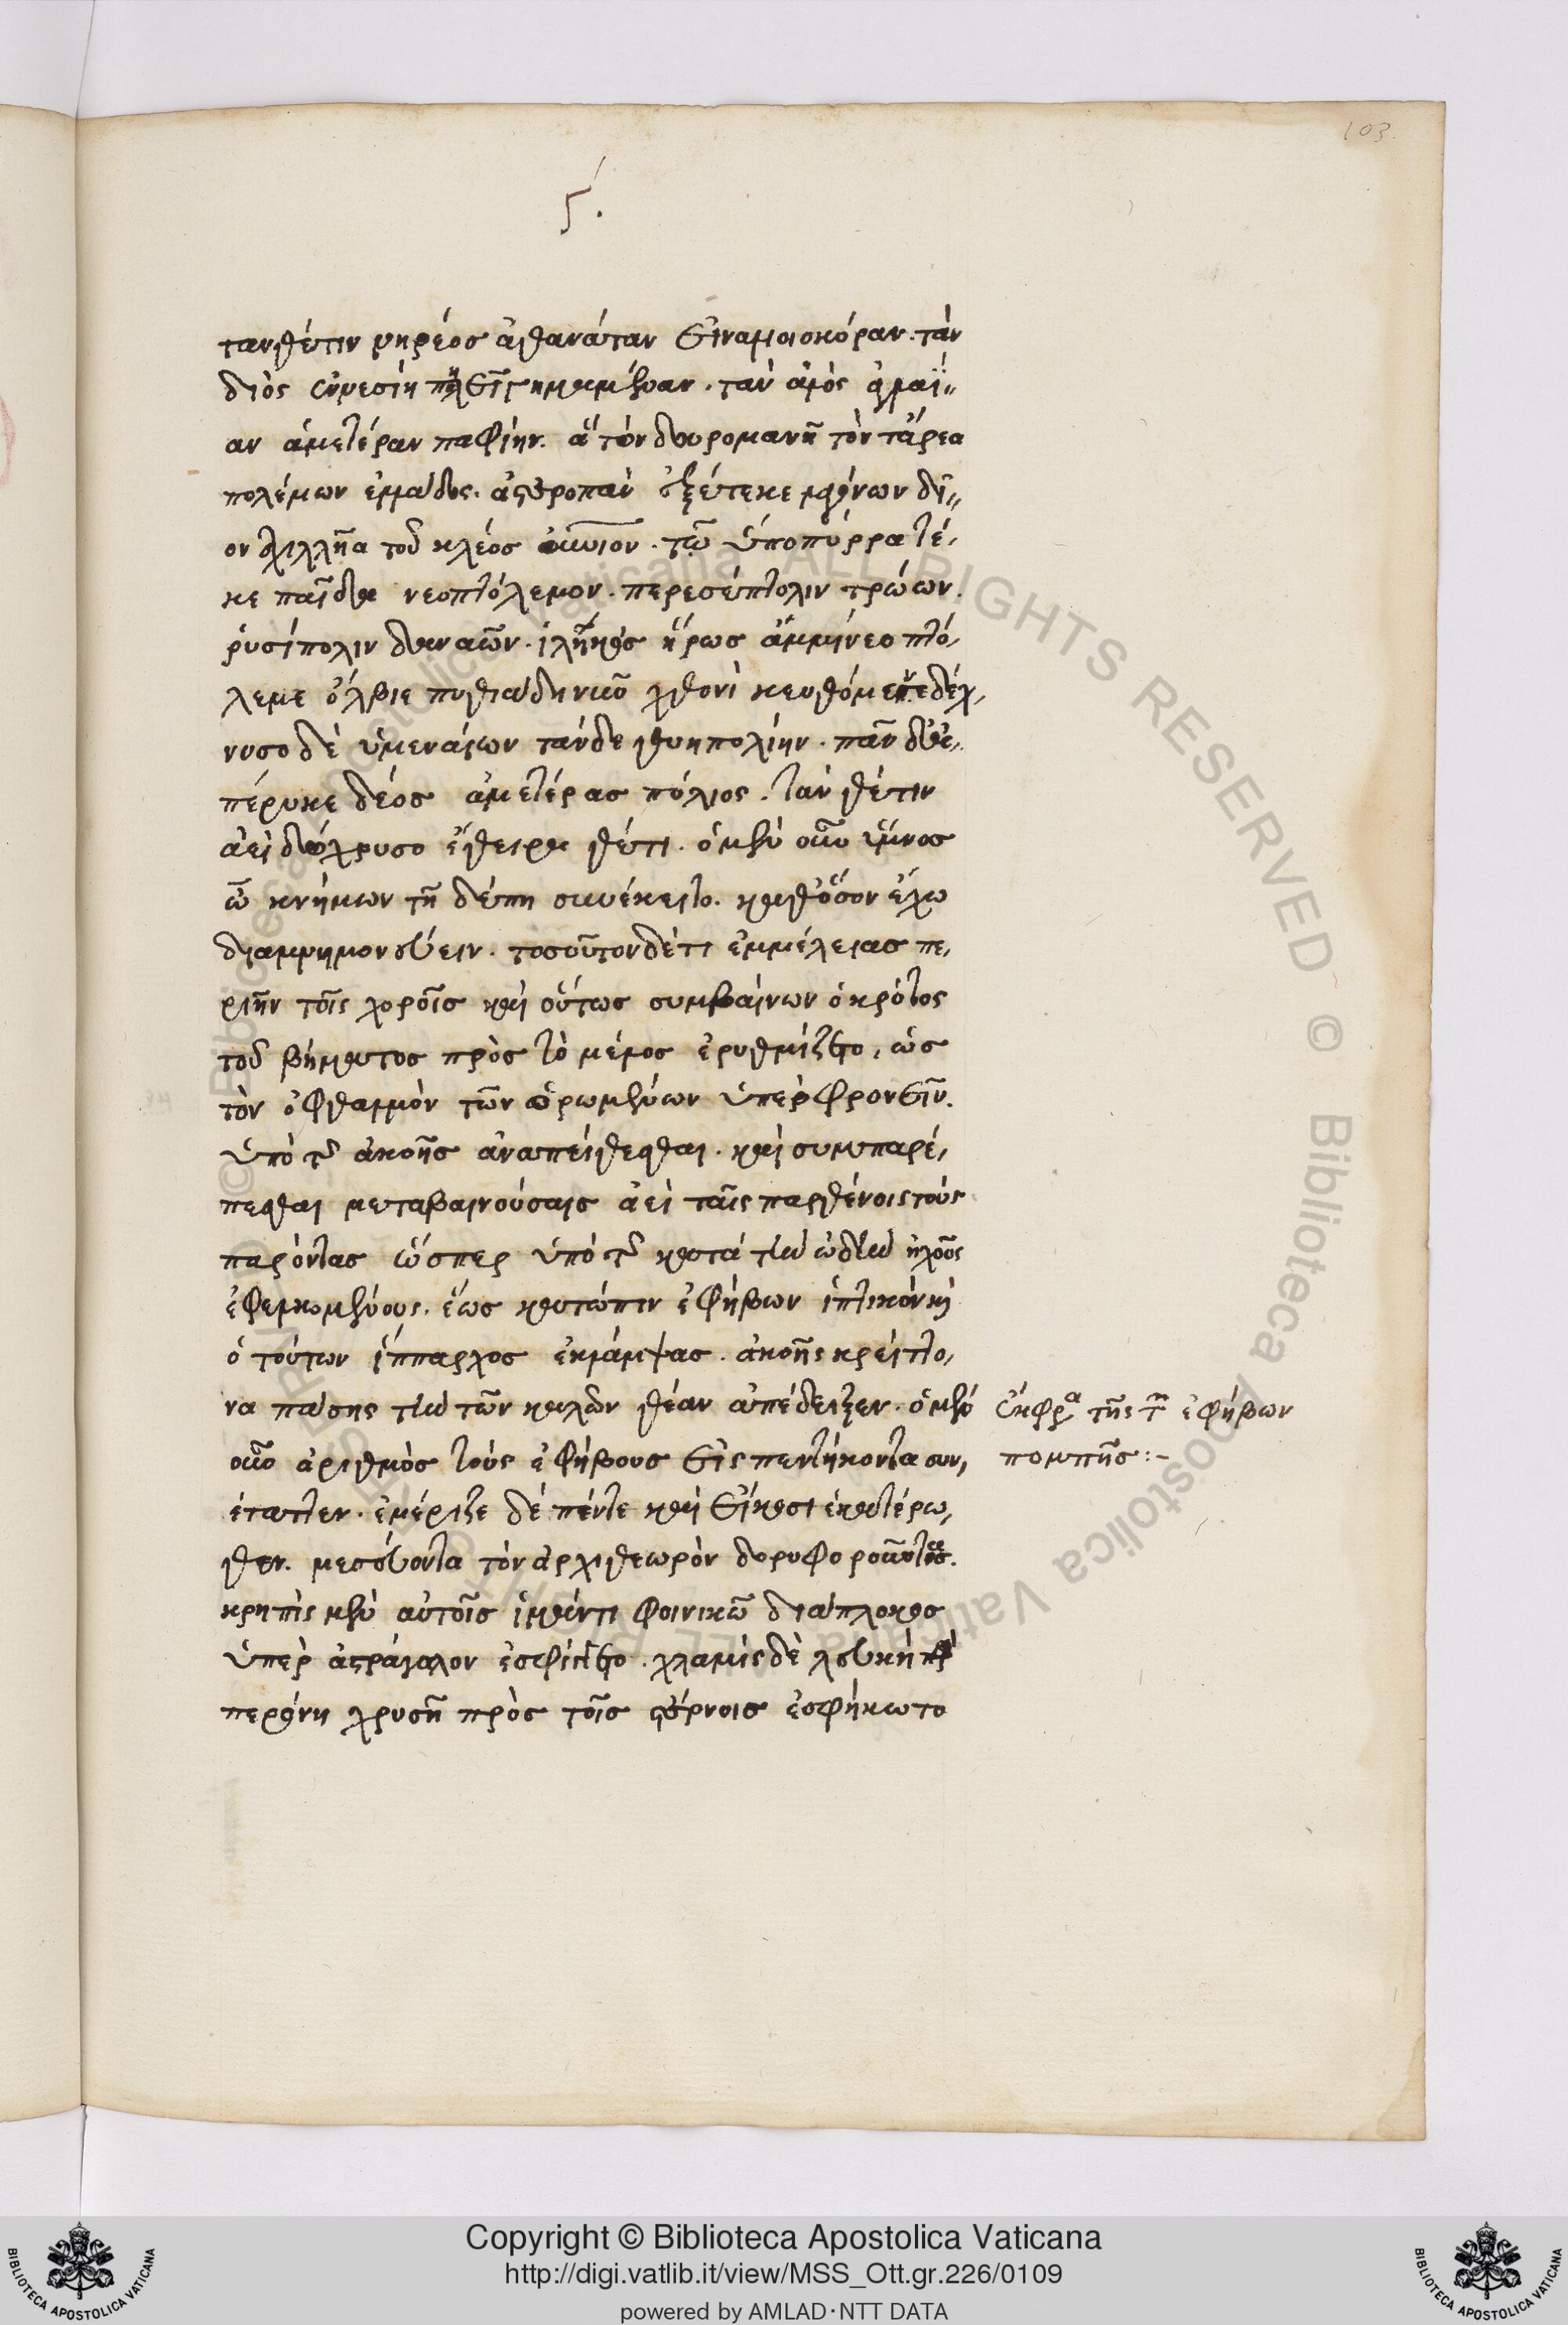 103.
ϛ΄.
τανθέτιν νηρέος ἀθανάταν εἰναλίοιο κόραν. τὰν
διὸς ἐννεσίη πηλεῖ γημαμέναν. τὰν ἁλὸς ἀγλαΐ-
αν ἁμετέραν παφίην. ἃ τὸν δουρομανῆ τὸν τ' ἄρεα
πολέμων ἑλλάδος ἀστεροπὰν ἐξέτεκε λαγόνων δῖ-
ον ἀχιλλῆα τοῦ κλέος οὐράνιον. τῷ ὑπὸ πύρρα τέ-
κε παῖδα νεοπτόλεμον. περσέπτολιν τρώων.
ῥυσίπολιν δαναῶν. ἱλήκοις ἥρως ἄμμι νεοπτό-
λεμε ὄλβιε πυθιάδι νῦν χθονὶ κευθόμενε δέχ-
νυσο δὲ ὑμεναίων τάνδε θυηπολίην. πᾶν δ' ἀ-
πέρυκε δέος ἁμετέρας πόλιος. τὰν θέτιν
ἀείδω χρυσοέθειρα θέτι. ὁ μὲν οὖν ὕμνος
ὦ κνήμων τῇδέ πη συνέκειτο. καθόσον ἔχω
διαμνημονεύειν. τοσοῦτον δέ τι ἐμμελείας πε-
ριῆν τοῖς χοροῖς καὶ οὕτως συμβαίνων ὁ κρότος
τοῦ βήματος πρὸς τὸ μέλος ἐρυθμίζετο, ὡς
τὸν ὀφθαλμὸν τῶν ὁρωμένων ὑπερφρονεῖν.
ὑπὸ τῆς ἀκοῆς ἀναπείθεσθαι. καὶ συμπαρέ-
πεσθαι μεταβαινούσαις ἀεὶ ταῖς παρθένοις τοὺς
παρόντας ὥσπερ ὑπὸ τῆς κατὰ τὴν ὠδὴν ἠχοῦς
ἐφελκομένους. ἕως κατόπιν ἐφήβων ἱππικὸν καὶ
ὁ τούτων ἵππαρχος ἐκλάμψας. ἀκοῆς κρείττο-
να πάσης τὴν τῶν καλῶν θέαν ἀπέδειξεν. ὁ μὲν
οὖν ἀριθμὸς τοὺς ἐφήβους εἰς πεντήκοντα συν-
έταττεν. ἐμέριζε δὲ πέντε καὶ εἴκοσι ἑκατέρω-
θεν. μεσεύοντα τὸν ἀρχιθεωρὸν δορυφοροῦντας.
κρηπὶς μὲν αὐτοῖς ἱμάντι φοινικῷ διάπλοκος
ὑπὲρ ἀστράγαλον ἐσφίγγετο. χλαμὺς δὲ λευκὴ
περόνη χρυσῇ πρὸς τοῖς στέρνοις ἐσφήκωτο
ἔκφρα τῆς τῶν ἐφήβων
πομπῆς:-
© Biblioteca Apostolica Vaticana ALL RIGHTS RESERVED © Biblioteca Apostolica Vaticana ALL RIGHTS RESERVED
BIBLIOTECA APOSTOLICA VATICANA
Copyright © Biblioteca Apostolica Vaticana
http://digi.vatlib.it/view/MSS_Ott.gr.226/0109
powered by AMLAD·NTT DATA
BIBLIOTECA APOSTOLICA VATICANA